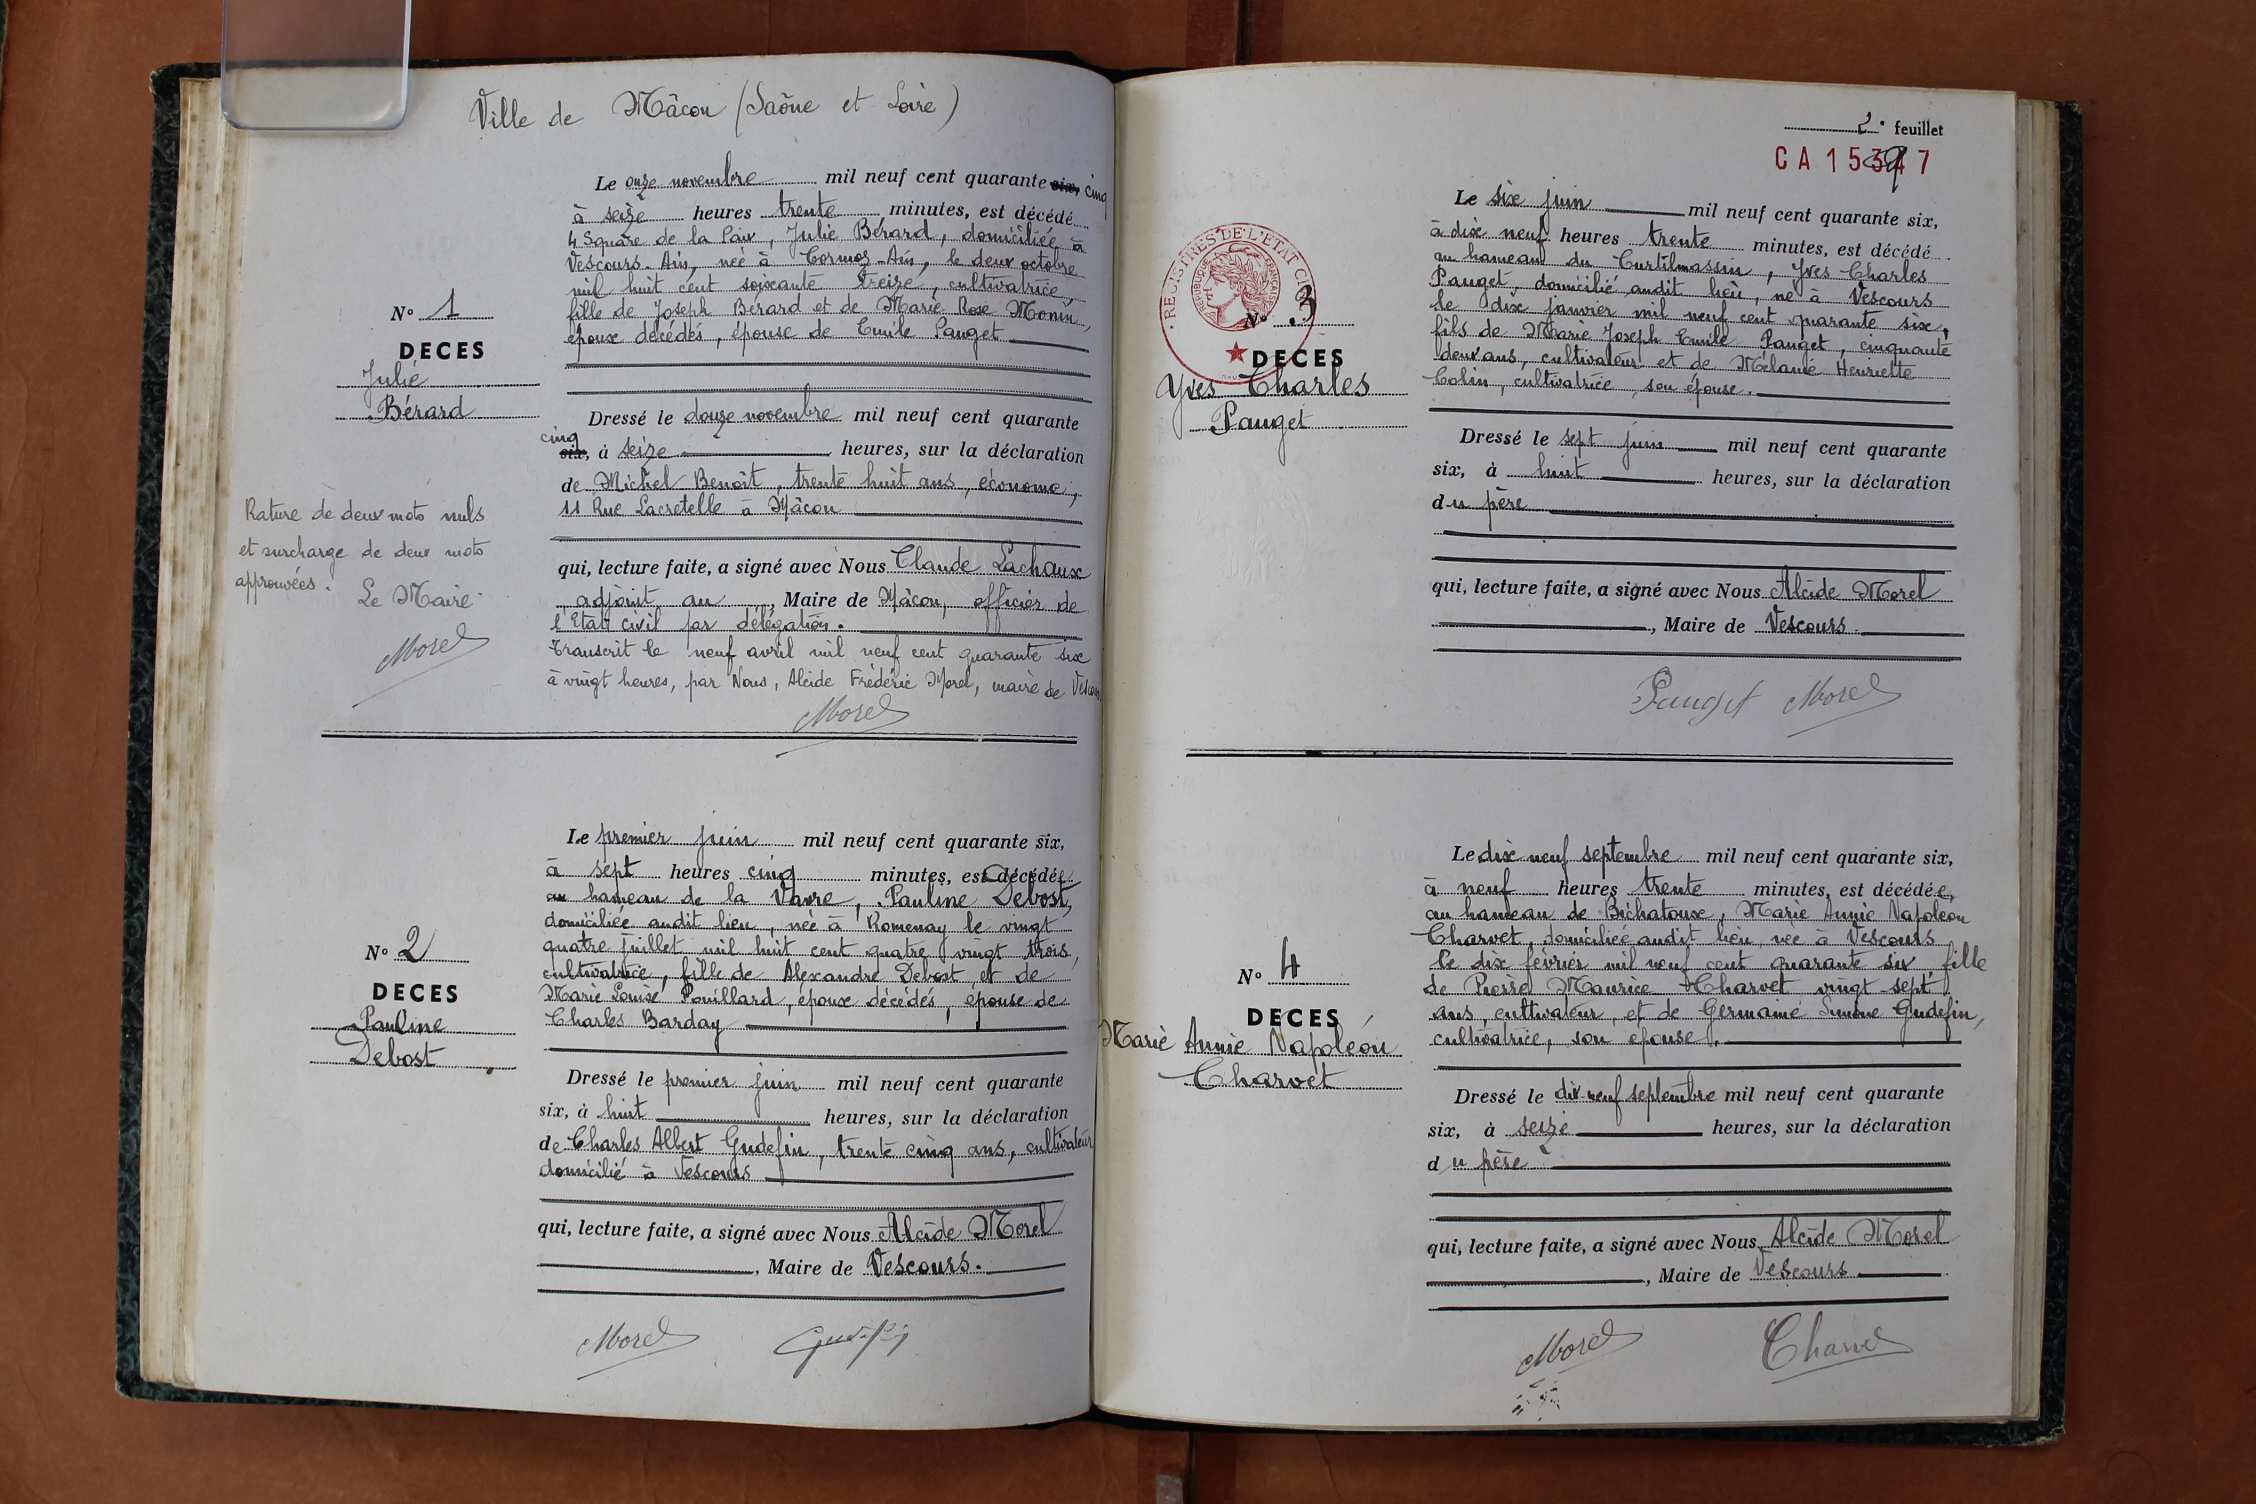 Ville de Mâcon (Saône et Loire)
Le onze novembre mil neuf cent quarante six, cinq
à seize heures trente minutes, est décédé
4 Square de la Paix, Julie Bérard, domiciliée à
Vescours-Ain, née à Cormoz-Ain, le deux octobre
mil huit cent soixante treize, cultivatrice,
fille de Joseph Bérard et de Marie Rose Monin,
époux décédés, épouse de Emile Pauget
N° 1
DECES
Julie
Bérard
Dressé le douze novembre mil neuf cent quarante
cinq
six, à seize heures, sur la déclaration
de Michel Benoit, trente huit ans, économe,
11 Rue Lacretelle à Mâcon
Rature de deux mots nuls
et surcharge de deux mots
approuvées. Le Maire
Morel
qui, lecture faite, a signé avec Nous Claude Lachaux
adjoint au , Maire de Mâcon, officier de
l'Etat civil par délégation.
Transcrit le neuf avril mil neuf cent quarante six
à vingt heures, par Nous, Alcide Frédéric Morel, maire de Vescours
Morel
Le premier juin mil neuf cent quarante six,
à sept heures cinq minutes, est décédée
au hameau de la Vavre, Pauline Debost,
domiciliée audit lieu, née à Romenay le vingt
quatre juillet mil huit cent quatre vingt trois,
cultivatrice, fille de Alexandre Debost et de
Marie Louise Pouillard, époux décédés, épouse de
Charles Barday
N° 2
DECES
Pauline
Debost
Dressé le premier juin mil neuf cent quarante
six, à huit heures, sur la déclaration
de Charles Albert Gudefin, trente cinq ans, cultivateur
domicilié à Vescours
qui, lecture faite, a signé avec Nous Alcide Morel
, Maire de Vescours.
Morel Gudefin
2e feuillet
CA 15347
REGISTRES DE L'ETAT CIVIL
REPUBLIQUE FRANÇAISE
Le six juin mil neuf cent quarante six,
à dix neuf heures trente minutes, est décédé
au hameau du Curtilmassin, Yves Charles
Pauget, domicilié audit lieu, né à Vescours
le dix janvier mil neuf cent quarante six,
fils de Marie Joseph Emile Pauget, cinquante
deux ans, cultivateur et de Mélanie Henriette
Colin, cultivatrice, son épouse.
N° 3
DECES
Yves Charles
Pauget
Dressé le sept juin mil neuf cent quarante
six, à huit heures, sur la déclaration
du père
qui, lecture faite, a signé avec Nous Alcide Morel
, Maire de Vescours
Pauget Morel
Le dix neuf septembre mil neuf cent quarante six,
à neuf heures trente minutes, est décédée,
au hameau de Bichatoux, Marie Annie Napoléon
Charvet, domiciliée audit lieu, née à Vescours
le dix février mil neuf cent quarante six, fille
de Pierre Maurice Charvet vingt sept
ans, cultivateur, et de Germaine Simone Gudefin,
cultivatrice, son épouse.
N° 4
DECES
Marie Annie Napoléon
Charvet
Dressé le dix-neuf septembre mil neuf cent quarante
six, à seize heures, sur la déclaration
du père
qui, lecture faite, a signé avec Nous Alcide Morel
, Maire de Vescours
Morel Charvet